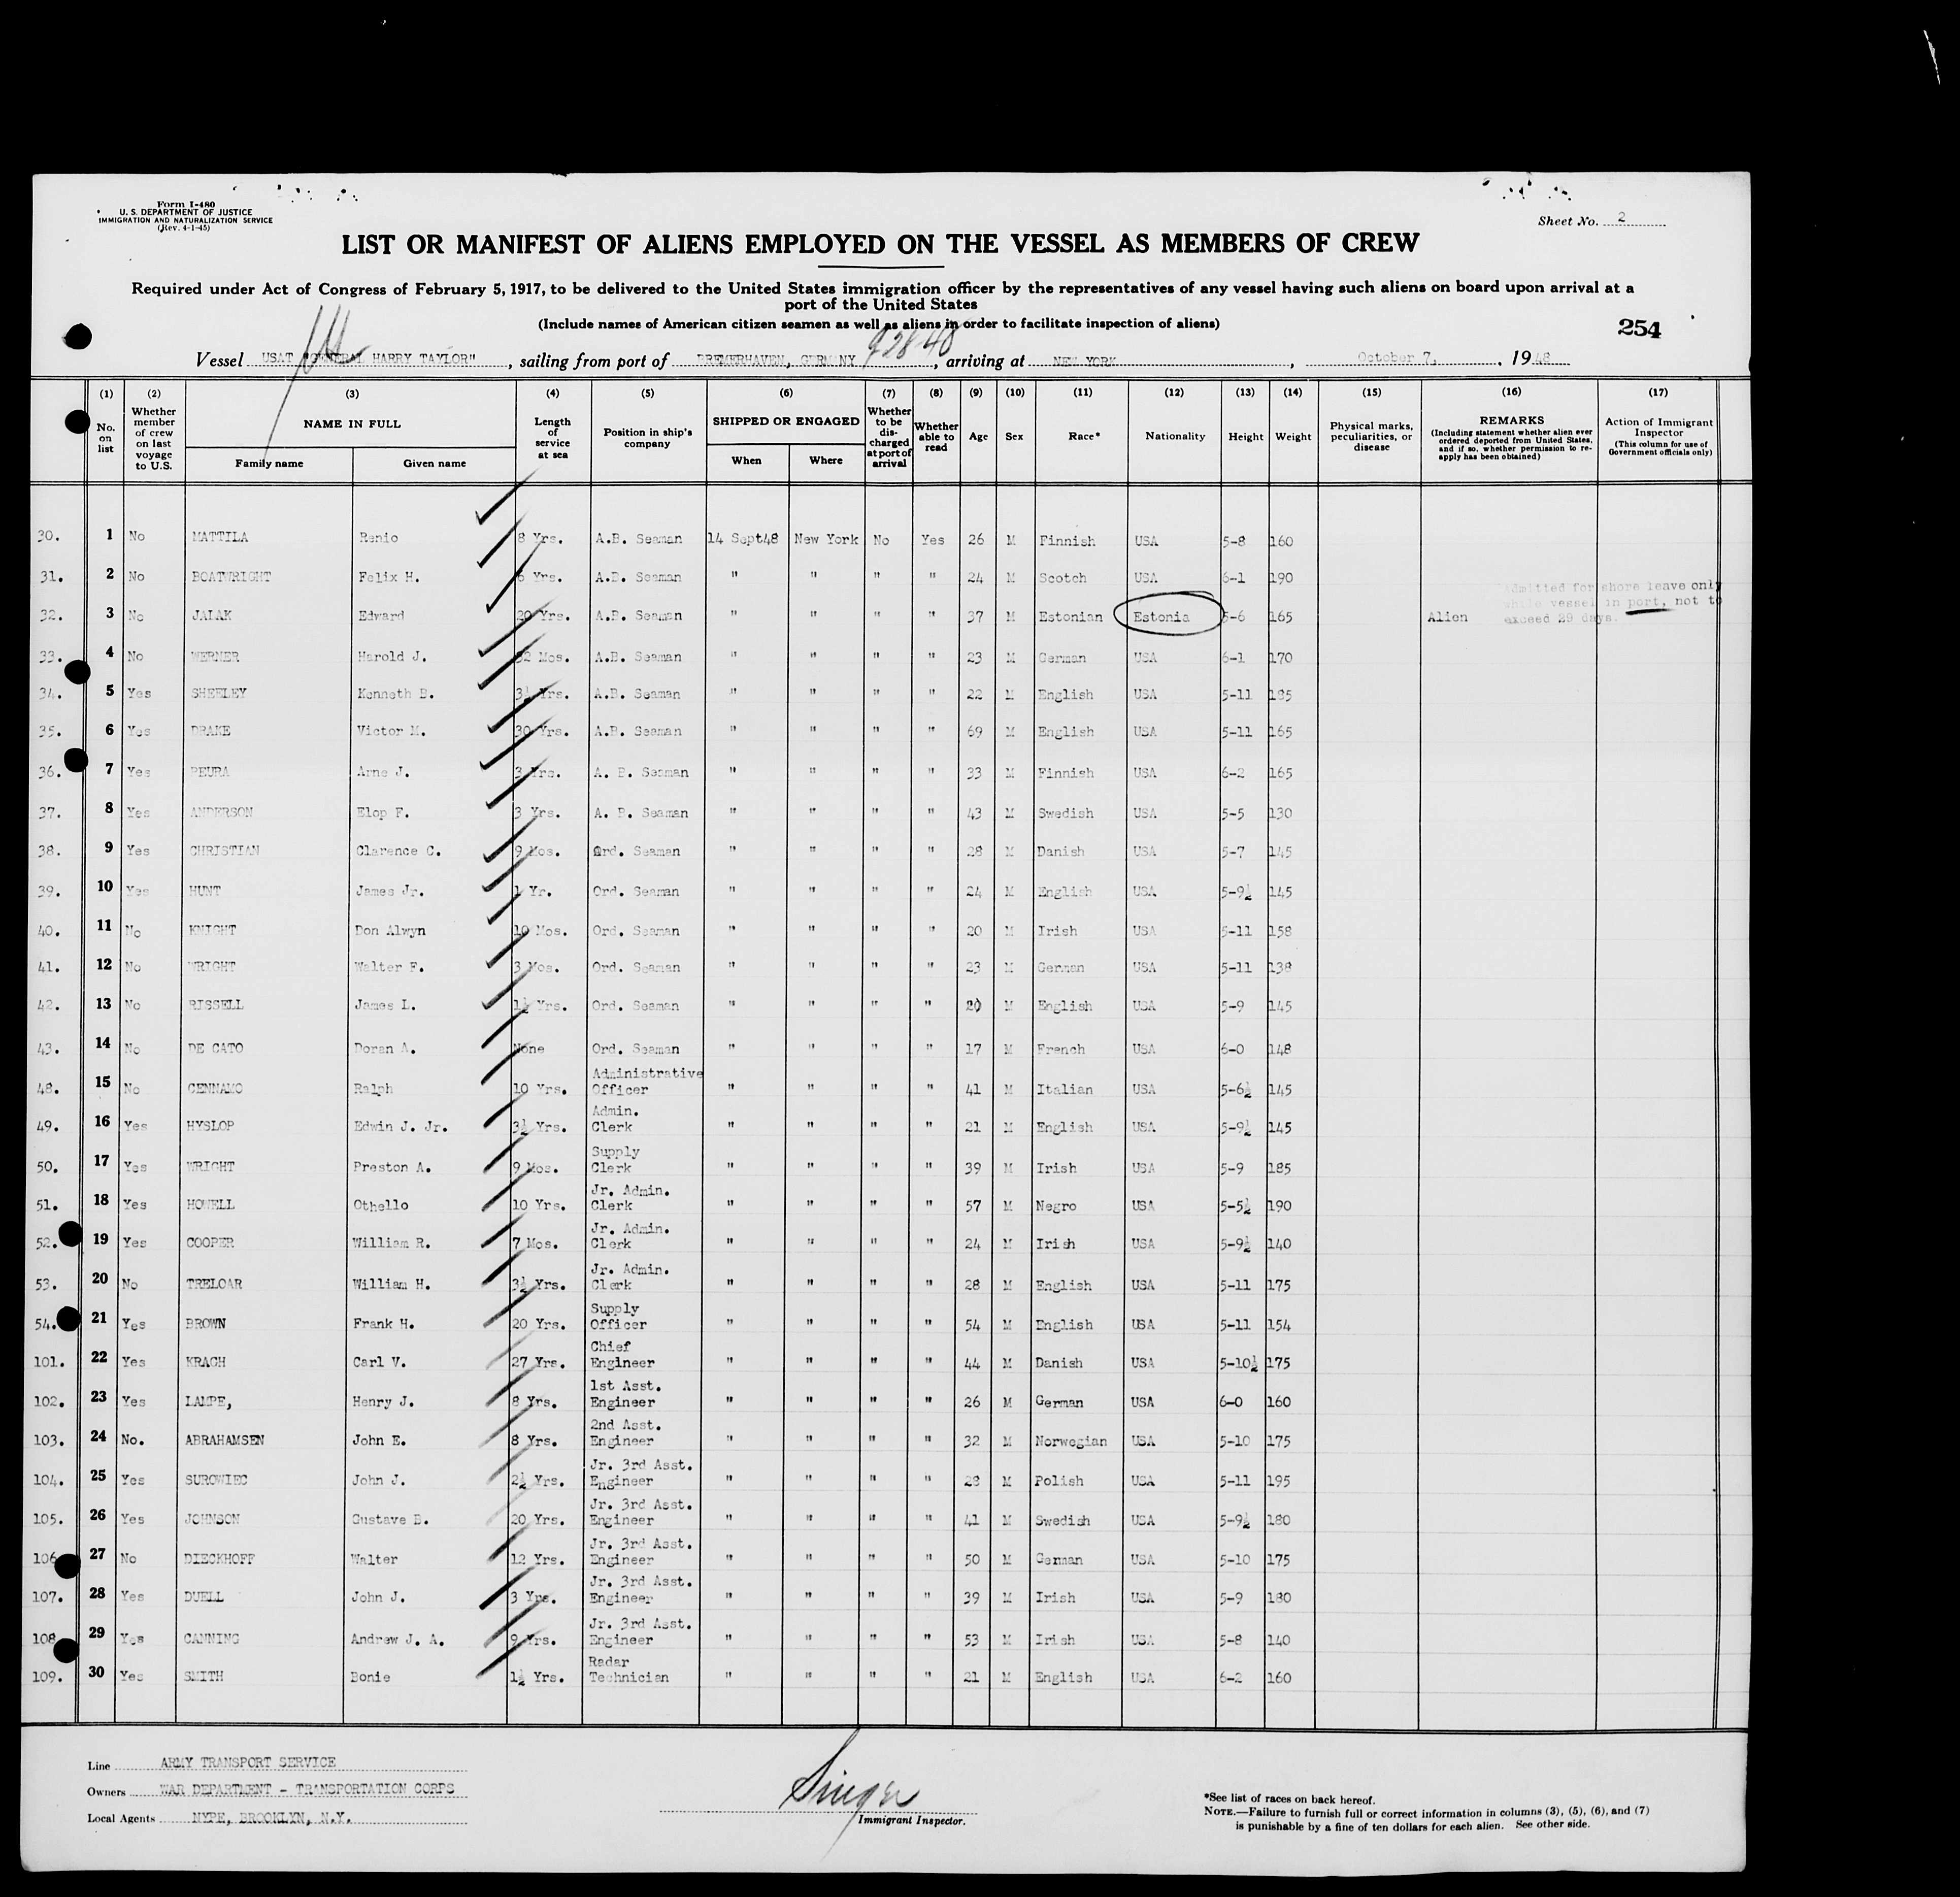 Form I-480
U. S. DEPARTMENT OF JUSTICE
IMMIGRATION AND NATURALIZATION SERVICE
(Rev. 4-1-45)
Sheet No. 2
LIST OR MANIFEST OF ALIENS EMPLOYED ON THE VESSEL AS MEMBERS OF CREW
Required under Act of Congress of February 5, 1917, to be delivered to the United States immigration officer by the representatives of any vessel having such aliens on board upon arrival at a
port of the United States
(Include names of American citizen seamen as well as aliens in order to facilitate inspection of aliens)
254
Vessel USAT "GENERAL HARRY TAYLOR", sailing from port of BREMERHAVEN, GERMANY, arriving at NEW YORK, October 7, 1948
(1) (2) (3) (4) (5) (6) (7) (8) (9) (10) (11) (12) (13) (14) (15) (16) (17)
No. on list Whether member of crew on last voyage to U.S. NAME IN FULL Family name Given name Length of service at sea Position in ship's company SHIPPED OR ENGAGED When Where Whether to be discharged at port of arrival Whether able to read Age Sex Race* Nationality Height Weight Physical marks, peculiarities, or disease REMARKS (Including statement whether alien ever ordered deported from United States, and if so, whether permission to re-apply has been obtained) Action of Immigrant Inspector (This column for use of Government officials only)
30. 1 No MATTILA Renio 8 Yrs. A.B. Seaman 14 Sept48 New York No Yes 26 M Finnish USA 5-8 160
31. 2 No BOATWRIGHT Felix H. 6 Yrs. A.B. Seaman " " " " 24 M Scotch USA 6-1 190
32. 3 No JALAK Edward 20 Yrs. A.B. Seaman " " " " 37 M Estonian Estonia 5-6 165 Alien Admitted for shore leave only while vessel in port, not to exceed 29 days.
33. 4 No WERNER Harold J. Mos. A.B. Seaman " " " " 23 M German USA 6-1 170
34. 5 Yes SHEELEY Kenneth B. 3½ Yrs. A.B. Seaman " " " " 22 M English USA 5-11 185
35. 6 Yes DRAKE Victor M. 30 Yrs. A.B. Seaman " " " " 69 M English USA 5-11 165
36. 7 Yes PEURA Arne J. 3 Yrs. A. B. Seaman " " " " 33 M Finnish USA 6-2 165
37. 8 Yes ANDERSON Elop F. 3 Yrs. A. B. Seaman " " " " 43 M Swedish USA 5-5 130
38. 9 Yes CHRISTIAN Clarence C. 9 Mos. Ord. Seaman " " " " 28 M Danish USA 5-7 145
39. 10 Yes HUNT James Jr. 1 Yr. Ord. Seaman " " " " 24 M English USA 5-9½ 145
40. 11 No KNIGHT Don Alwyn 10 Mos. Ord. Seaman " " " " 20 M Irish USA 5-11 158
41. 12 No WRIGHT Walter F. 3 Mos. Ord. Seaman " " " " 23 M German USA 5-11 138
42. 13 No RISSELL James L. 1½ Yrs. Ord. Seaman " " " " 20 M English USA 5-9 145
43. 14 No DE CATO Doran A. None Ord. Seaman " " " " 17 M French USA 6-0 148
48. 15 No CENNAMO Ralph 10 Yrs. Administrative Officer " " " " 41 M Italian USA 5-6½ 145
49. 16 Yes HYSLOP Edwin J. Jr. 3½ Yrs. Admin. Clerk " " " " 21 M English USA 5-9½ 145
50. 17 Yes WRIGHT Preston A. 9 Mos. Supply Clerk " " " " 39 M Irish USA 5-9 185
51. 18 Yes HOWELL Othello 10 Yrs. Jr. Admin. Clerk " " " " 57 M Negro USA 5-5½ 190
52. 19 Yes COOPER William R. 7 Mos. Jr. Admin. Clerk " " " " 24 M Irish USA 5-9½ 140
53. 20 No TRELOAR William H. 3½ Yrs. Jr. Admin. Clerk " " " " 28 M English USA 5-11 175
54. 21 Yes BROWN Frank H. 20 Yrs. Supply Officer " " " " 54 M English USA 5-11 154
101. 22 Yes KRACH Carl V. 27 Yrs. Chief Engineer " " " " 44 M Danish USA 5-10½ 175
102. 23 Yes LAMPE, Henry J. 8 Yrs. 1st Asst. Engineer " " " " 26 M German USA 6-0 160
103. 24 No. ABRAHAMSEN John E. 8 Yrs. 2nd Asst. Engineer " " " " 32 M Norwegian USA 5-10 175
104. 25 Yes SUROWIEC John J. 2½ Yrs. Jr. 3rd Asst. Engineer " " " " 28 M Polish USA 5-11 195
105. 26 Yes JOHNSON Gustave B. 20 Yrs. Jr. 3rd Asst. Engineer " " " " 41 M Swedish USA 5-9½ 180
106 27 No DIECKHOFF Walter 12 Yrs. Jr. 3rd Asst. Engineer " " " " 50 M German USA 5-10 175
107. 28 Yes DUELL John J. 3 Yrs. Jr. 3rd Asst. Engineer " " " " 39 M Irish USA 5-9 180
108 29 Yes CANNING Andrew J. A. 9 Yrs. Jr. 3rd Asst. Engineer " " " " 53 M Irish USA 5-8 140
109. 30 Yes SMITH Bonie 1½ Yrs. Radar Technician " " " " 21 M English USA 6-2 160
Line ARMY TRANSPORT SERVICE
Owners WAR DEPARTMENT - TRANSPORTATION CORPS
Local Agents NYPE, BROOKLYN, N.Y.
Singer
Immigrant Inspector.
*See list of races on back hereof.
NOTE.—Failure to furnish full or correct information in columns (3), (5), (6), and (7)
is punishable by a fine of ten dollars for each alien. See other side.